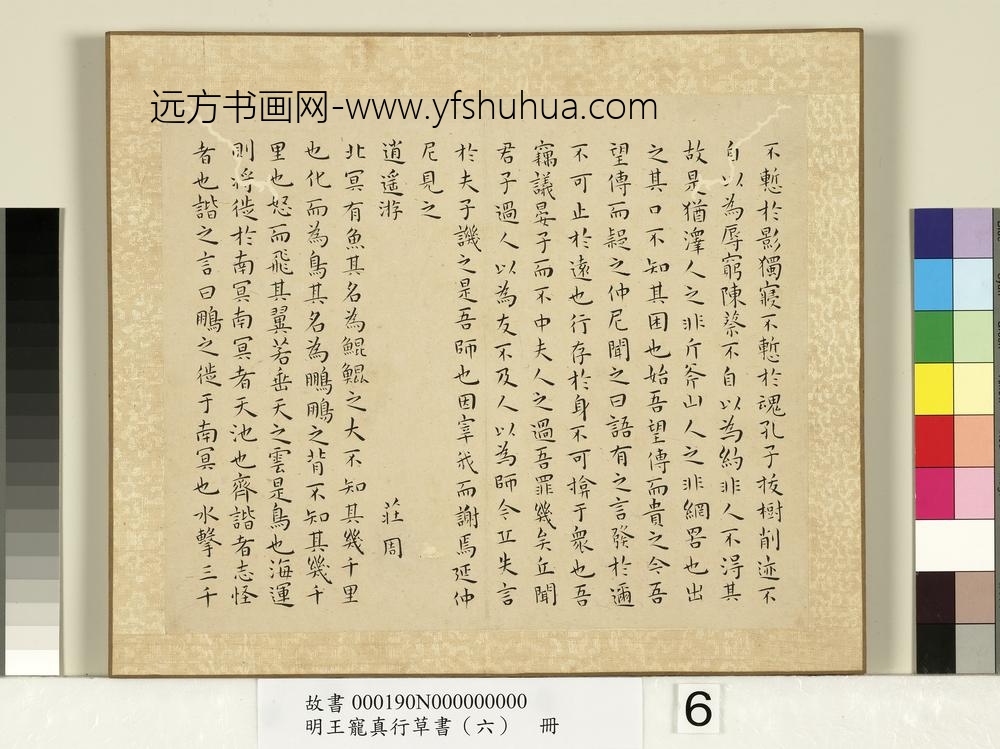 远方书画网-www.yfshuhua.com
不慙於影獨寢不慙於魂孔子拔樹削迹不
自以為辱窮陳蔡不自以為約非人不淂其
故是猶澤人之非斤斧山人之非網罟也出
之其口不知其困也始吾望傳而貴之今吾
望傳而疑之仲尼聞之曰語有之言發於邇
不可止於遠也行存於身不可揜于衆也吾
竊議晏子而不中夫人之過吾罪幾矣丘聞
君子過人以為友不及人以為師今丘失言
於夫子譏之是吾師也因宰我而謝焉延仲
尼見之
逍遥游 莊周
北冥有魚其名為鯤鯤之大不知其幾千里
也化而為鳥其名為鵬鵬之背不知其幾千
里也怒而飛其翼若垂天之雲是鳥也海運
則將徙於南冥南冥者天池也齊諧者志怪
者也諧之言曰鵬之徙于南冥也水擊三千
故書 000190N000000000
明王寵真行草書（六） 冊
6